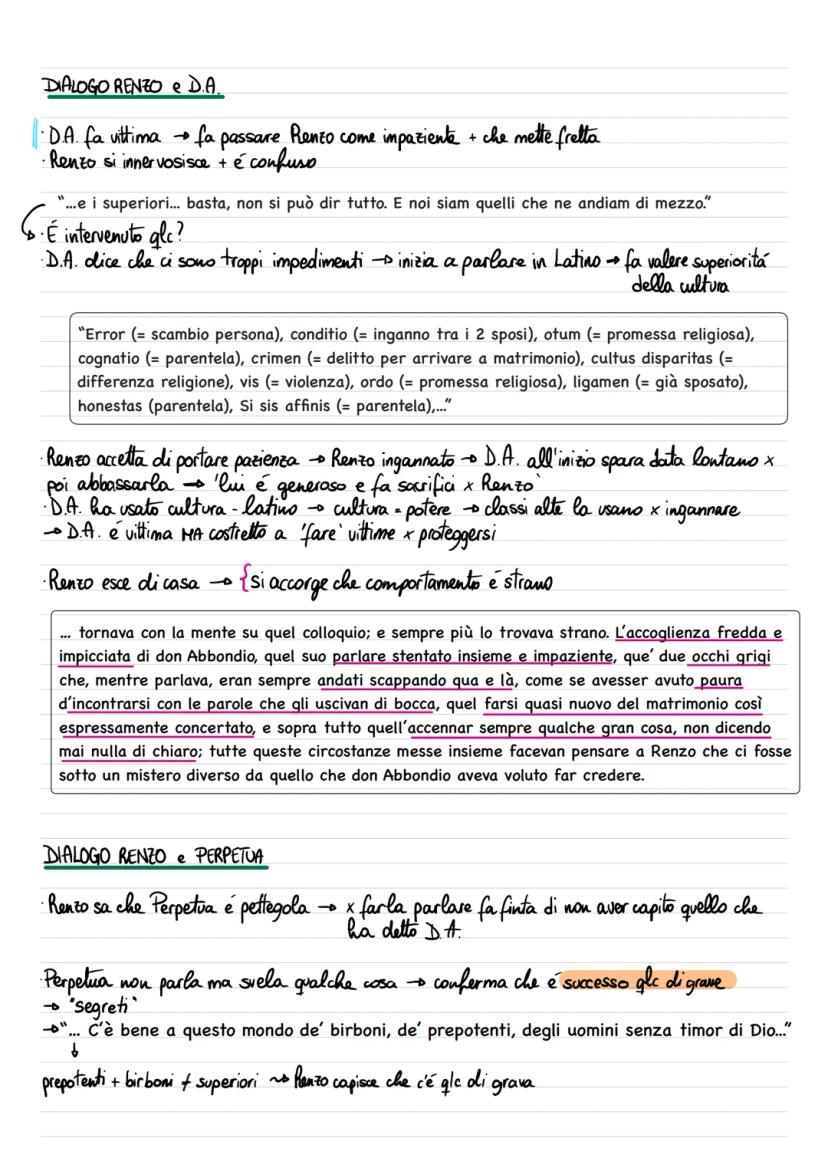 DIALOGO RENZO e D.A.
· D.A. fa vittima → fa passare Renzo come impaziente + che mette fretta
· Renzo si innervosisce + é confuso
"...e i superiori... basta, non si può dir tutto. E noi siam quelli che ne andiam di mezzo."
· É intervenuto qlc?
· D.A. dice che ci sono troppi impedimenti → inizia a parlare in Latino → fa valere superioritá
della cultura
"Error (= scambio persona), conditio (= inganno tra i 2 sposi), otum (= promessa religiosa),
cognatio (= parentela), crimen (= delitto per arrivare a matrimonio), cultus disparitas (=
differenza religione), vis (= violenza), ordo (= promessa religiosa), ligamen (= già sposato),
honestas (parentela), Si sis affinis (= parentela),..."
· Renzo accetta di portare pazienza → Renzo ingannato → D.A. all'inizio spara data lontano x
poi abbassarla → 'lui é generoso e fa sacrifici x Renzo'
· D.A. ha usato cultura - latino → cultura = potere → classi alte la usano x ingannare
→ D.A. é vittima MA costretto a 'fare' vittime x proteggersi
· Renzo esce di casa → { si accorge che comportamento é strano
... tornava con la mente su quel colloquio; e sempre più lo trovava strano. L'accoglienza fredda e
impicciata di don Abbondio, quel suo parlare stentato insieme e impaziente, que' due occhi grigi
che, mentre parlava, eran sempre andati scappando qua e là, come se avesser avuto paura
d'incontrarsi con le parole che gli uscivan di bocca, quel farsi quasi nuovo del matrimonio così
espressamente concertato, e sopra tutto quell'accennar sempre qualche gran cosa, non dicendo
mai nulla di chiaro; tutte queste circostanze messe insieme facevan pensare a Renzo che ci fosse
sotto un mistero diverso da quello che don Abbondio aveva voluto far credere.
DIALOGO RENZO e PERPETUA
· Renzo sa che Perpetua é pettegola → x farla parlare fa finta di non aver capito quello che
ha detto D.A.
Perpetua non parla ma svela qualche cosa → conferma che é successo qlc di grave
→ "segreti"
→ "... C'è bene a questo mondo de' birboni, de' prepotenti, degli uomini senza timor di Dio..."
↓
prepotenti + birboni ≠ superiori ⇝ Renzo capisce che c'é qlc di grava